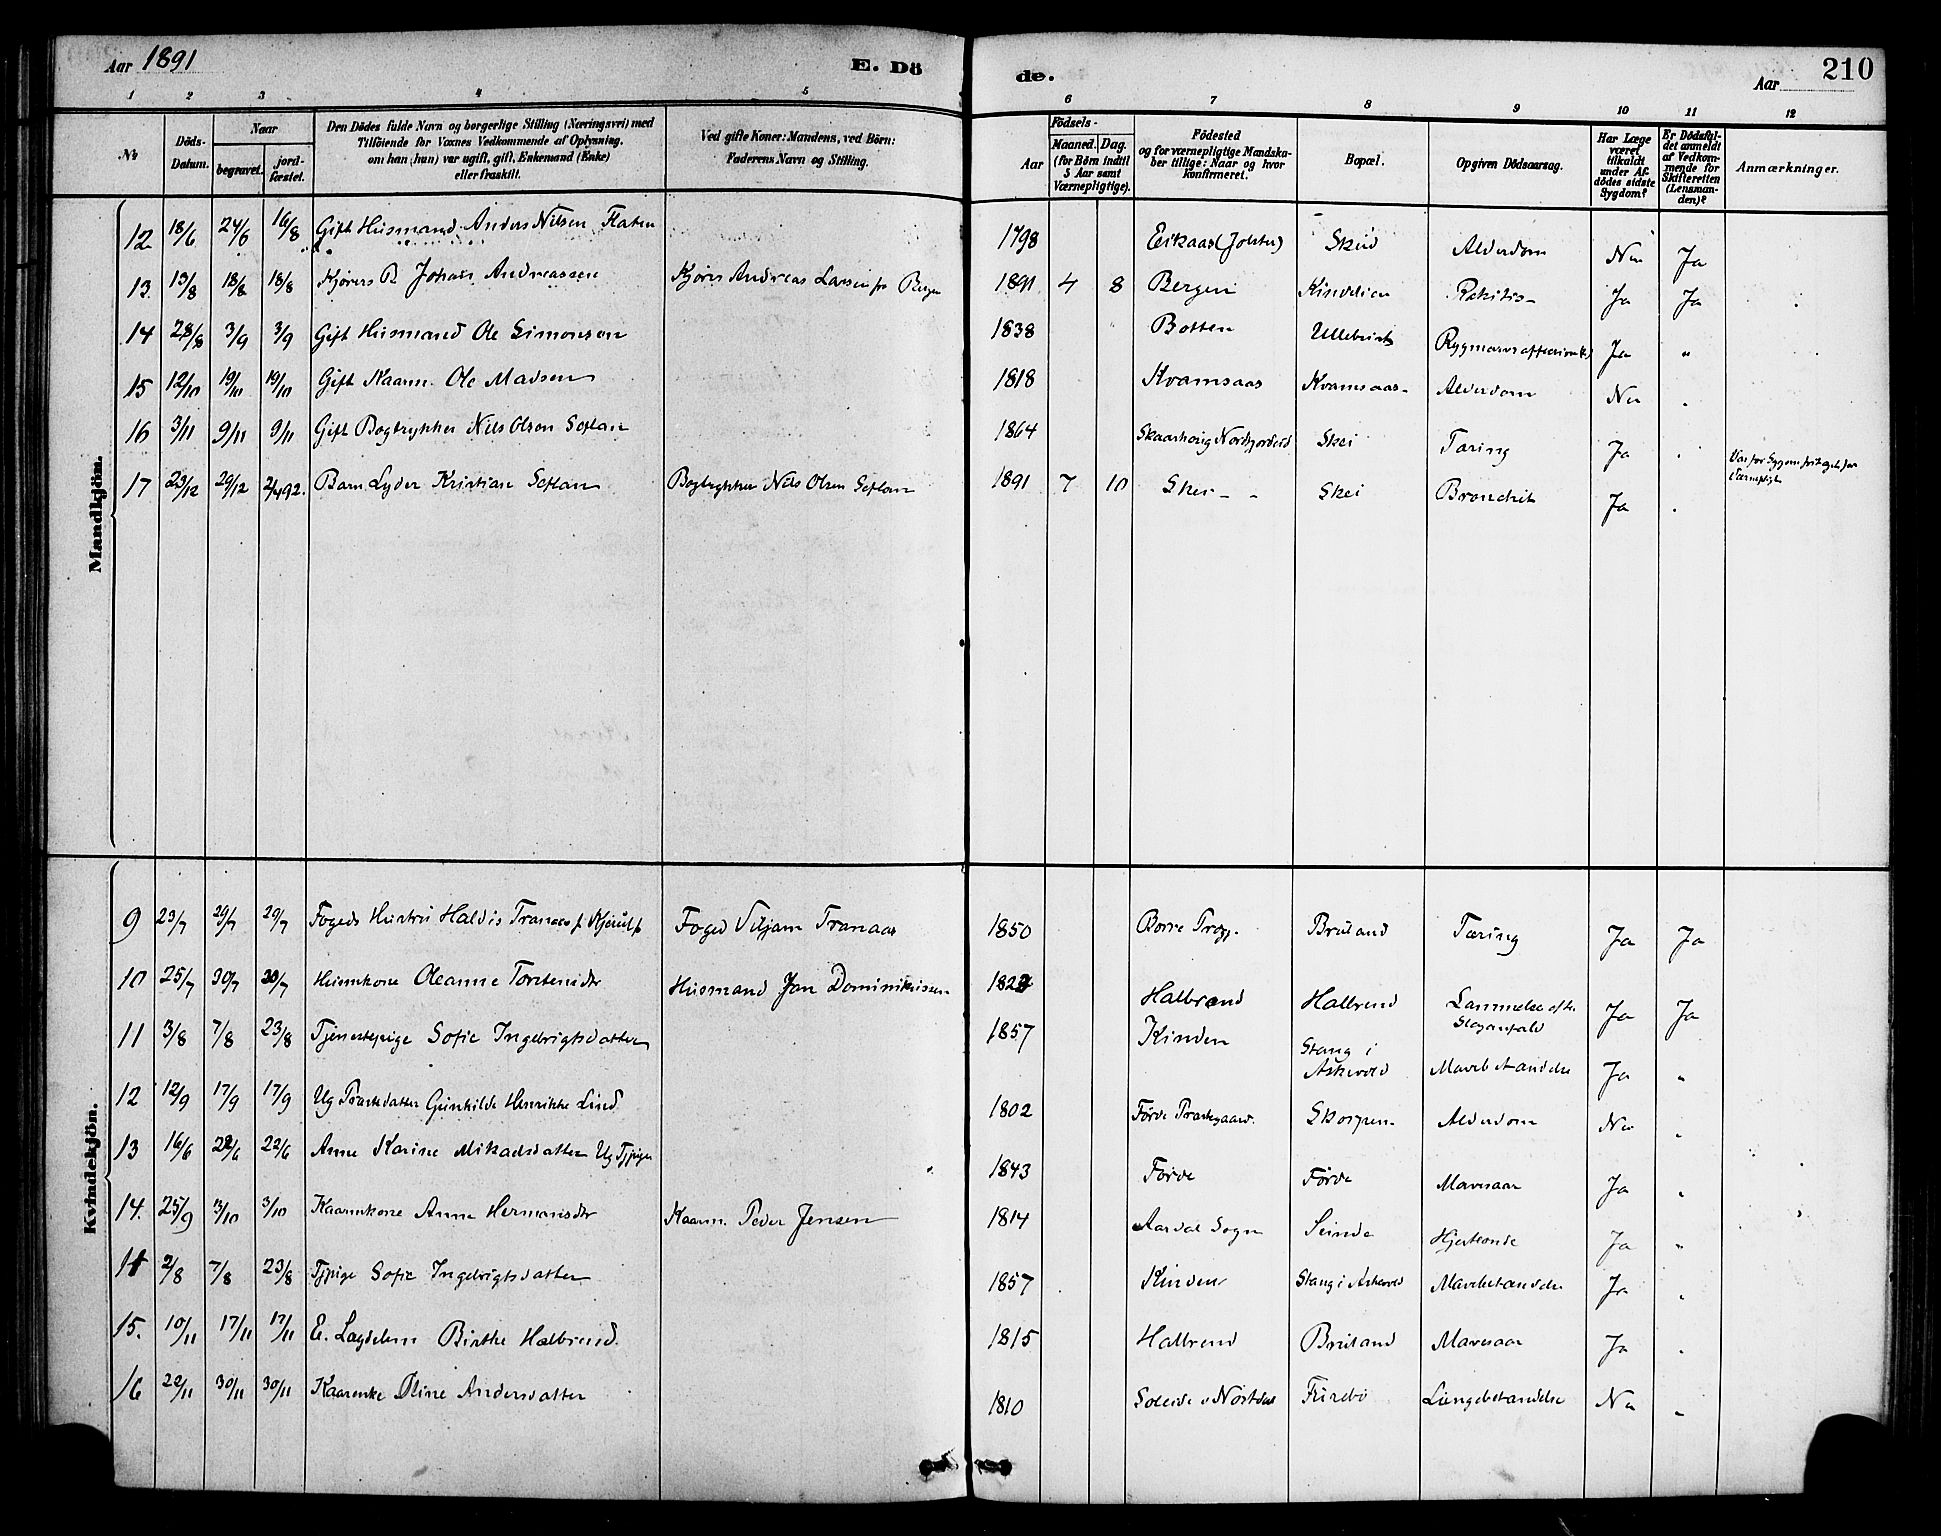 Aar 1891 E. Dö de. Aar 210
1 2 3 4 5 6 7 8 9 10 11 12
No Döds-Datum. Naar begravet. jord-fæstet. Den Dödes fulde Navn og borgerlige Stilling (Næringsvei) med Tilföiende for Voxnes Vedkommende af Oplysning, om han (hun) var ugift, gift, Enkemand (Enke) eller fraskilt. Ved gifte Koner: Mandens, ved Börn: Faderens Navn og Stilling. Födsels- Aar Maaned. Dag. (for Börn indtil 5 Aar samt Værnepligtige). Födested og for værnepligtige Mandska-ber tillige: Naar og hvor konfirmeret. Bopæl. Opgiven Dödsaarsag. Har Læge været tilkaldt under Af-dödes sidste Sygdom? Er Dödsfal-det anmeldt af Vedkom-mende for Skifteretten (Lensman-den)? Anmærkninger.
Mandkjön.
12 18/6 24/6 16/8 Gift Husmand Anders Nilsen Flaten 1798 Eikaas (Jolster) Skeid Alderdom Nei Ja
13. 13/8 18/8 18/8 Kjørers B. Johan Andreassen Kjører Andreas Larsen fr Bergen 1891 4 8 Bergen Rakitis Ja Ja
14 28/8 3/9 3/9 Gift Husmand Ole Simonsen 1838 Botten Ja "
15 12/10 19/10 19/10 Gift Kaarm. Ole Madsen 1818 Kvamsaas Kvamsaas Alderdom Nei "
16 3/11 9/11 9/11 Gift Bogtrykker Nils Olsen Seflan 1864 Skei Tæring Ja "
17 23/12 29/12 2/4 92. Barn Lyder Kristian Seflan Bogtrykker Nils Olsen Seflan 1891 7 10 Skei " Skei Bronchit Ja "
Kvindekjön.
9 23/7 29/7 29/7 Fogeds Hustru Haldis Tranaas f. Kjerulf Foged Viljam Tranaas 1850 Borre Bruland Tæring Ja Ja
10 25/7 30/7 30/7 Husmkone Oleanne Torstensdtr Husmand Jan Dominikussen Halbrend Halbrend Lammelse efter Slaganfald Ja Ja
11 3/8 7/8 23/8 Tjenestepige Sofie Ingebrigtsdatter 1857 Kinden Stang i Askevold Mavebetændelse Ja "
12 12/9 17/9 17/9 Ug Præstedatter Gunhilde Henrikke Lind 1802 Førde Præstegaard. Alderdom Nei "
13 16/6 22/6 22/6 Anne Karine Mikaelsdatter Ug Tjpige 1843 Førde Førde Mavesaar Ja "
14. 25/9 3/10 3/10 Kaarmkone Anne Hermansdtr Kaarm. Peder Jensen 1814 Aardal Sogn Hjerteonde Ja "
11 2/8 7/8 23/8 Tjpige Sofie Ingebrigtsdatter 1857 Kinden Stang i Askevold Mavebetændelse Ja "
15. 10/11 17/11 17/11 E. Lægdslem Birthe Halbrend. 1815 Halbrend Bruland Mavesaar Ja "
16 22/11 30/11 30/11 Kaarenke Oline Andersdatter 1810 Soleide i Nøstdal Furebø Lungebetændelse Nei "